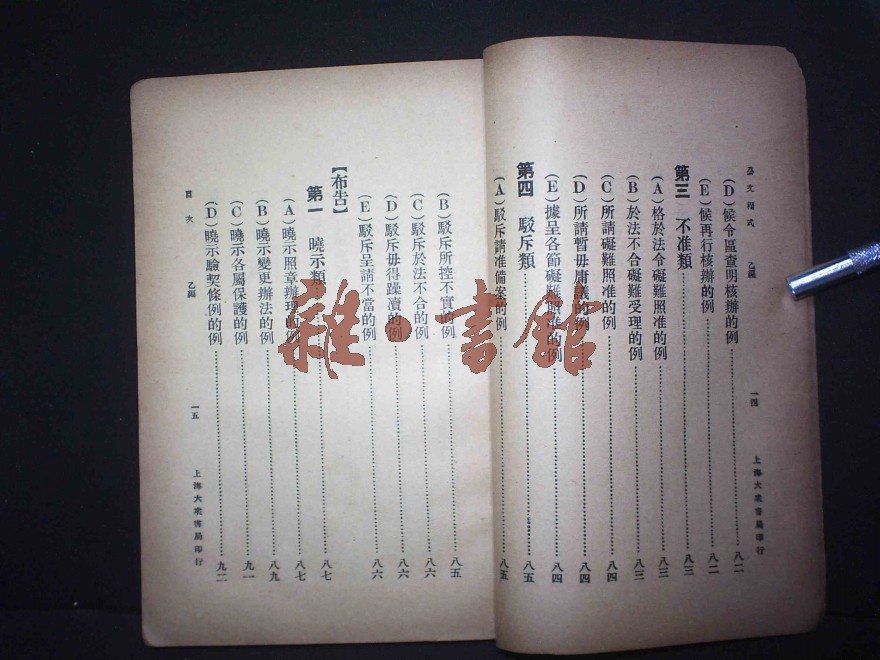 公文程式 乙編 一四 上海大衆書局印行
(D)候令區查明核辦的例 八二
(E)候再行核辦的例 八二
第三 不准類 八三
(A)格於法令礙難照准的例 八三
(B)於法不合礙難受理的例 八三
(C)所請礙難照准的例 八四
(D)所請暫毋庸議的例 八四
(E)據呈各節礙難照准的例 八四
第四 駁斥類 八五
(A)駁斥請准備案的例 八五
(B)駁斥所控不實的例 八五
(C)駁斥於法不合的例 八六
(D)駁斥毋得躁瀆的例 八六
(E)駁斥呈請不當的例 八六
【布告】
第一 曉示類 八七
(A)曉示照章辦理的例 八七
(B)曉示變更辦法的例 八九
(C)曉示各屬保護的例 九一
(D)曉示驗契條例的例 九二
目次 乙編 一五 上海大衆書局印行
雜·書館